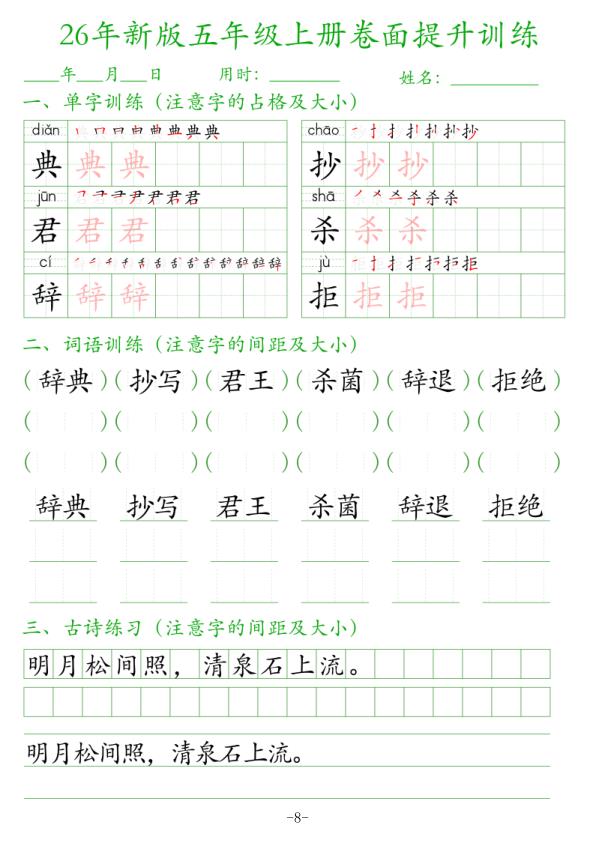 26年新版五年级上册卷面提升训练
____年___月___日 用时：________ 姓名：__________
一、单字训练（注意字的占格及大小）
diǎn chāo
典 典 典 抄 抄 抄
jūn shā
君 君 君 杀 杀 杀
cí jù
辞 辞 辞 拒 拒 拒
二、词语训练（注意字的间距及大小）
（辞典）（抄写）（君王）（杀菌）（辞退）（拒绝）
（ ）（ ）（ ）（ ）（ ）（ ）
（ ）（ ）（ ）（ ）（ ）（ ）
辞典 抄写 君王 杀菌 辞退 拒绝
三、古诗练习（注意字的间距及大小）
明月松间照，清泉石上流。
明月松间照，清泉石上流。
-8-